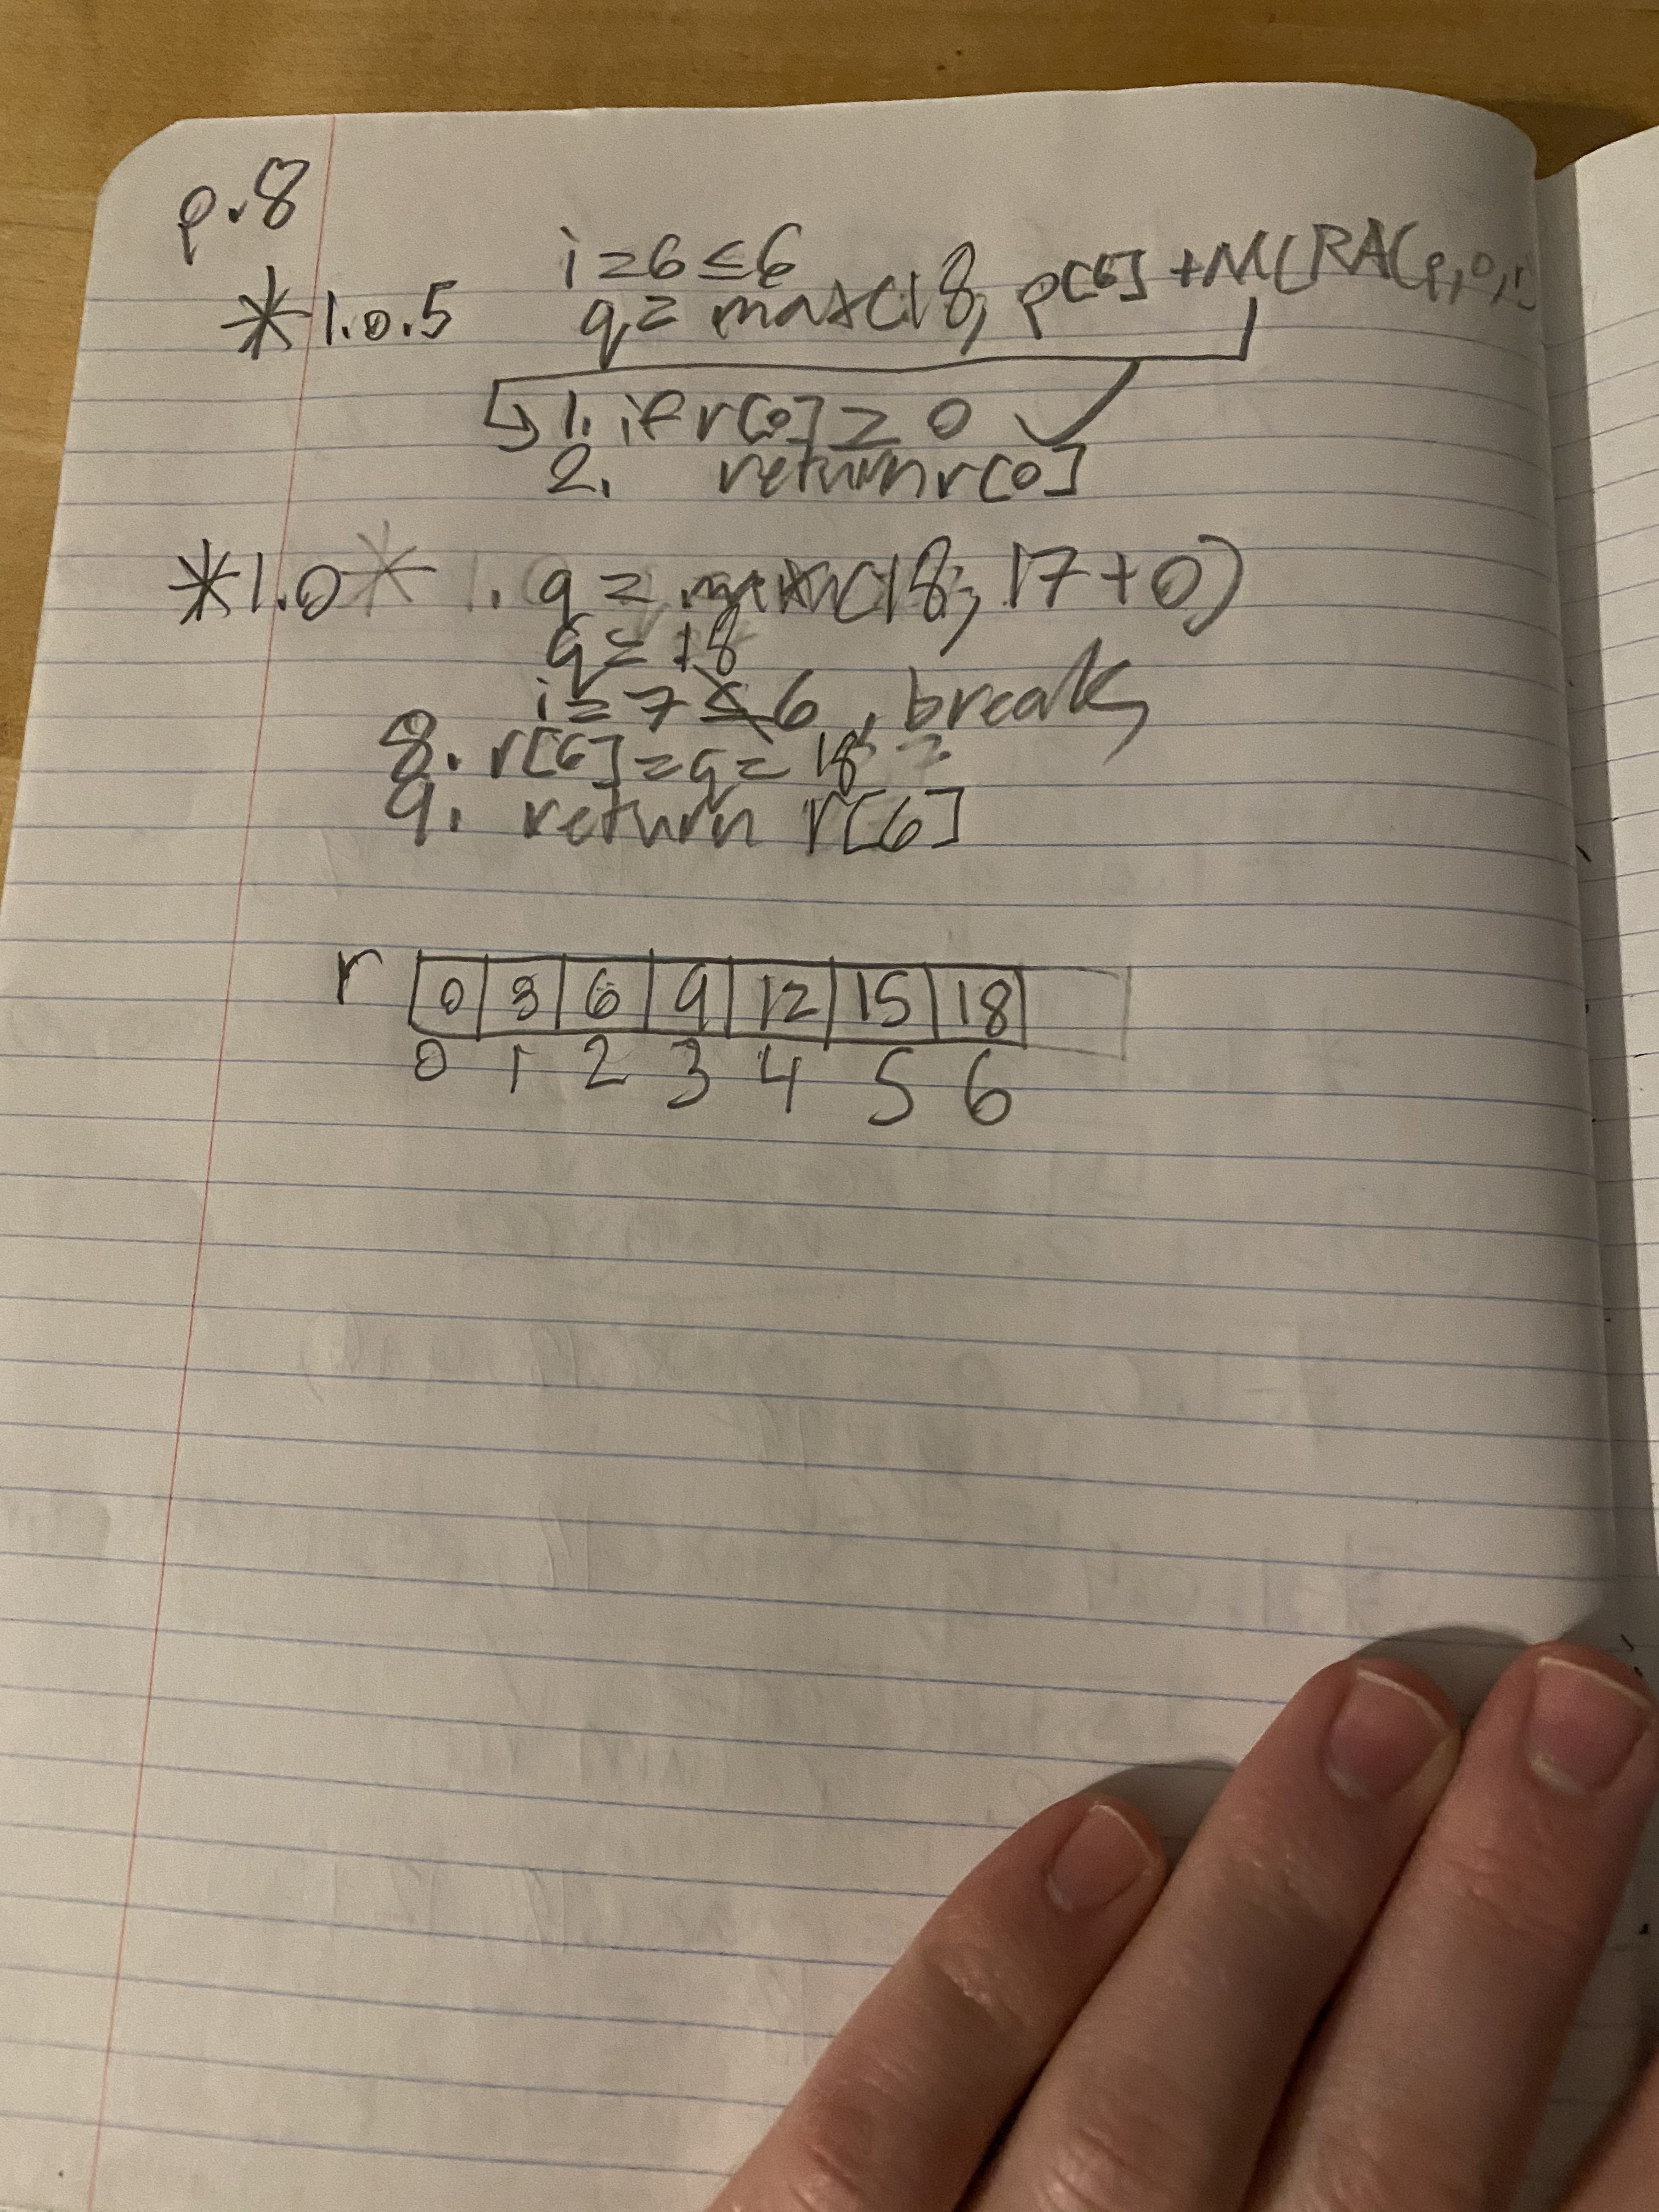 p.8
i=6≤6
*1.0.5 q= max(18, p[6] + MCRA(p,0,r)
↳ 1. if r[0] ≥ 0 ✓
2. return r[0]
*1.0 * 1. q = max(18, 17+0)
q = 18
i = 7 ≰ 6, breaks
8. r[6] = q = 18
9. return r[6]
r 0 3 6 9 12 15 18
0 1 2 3 4 5 6